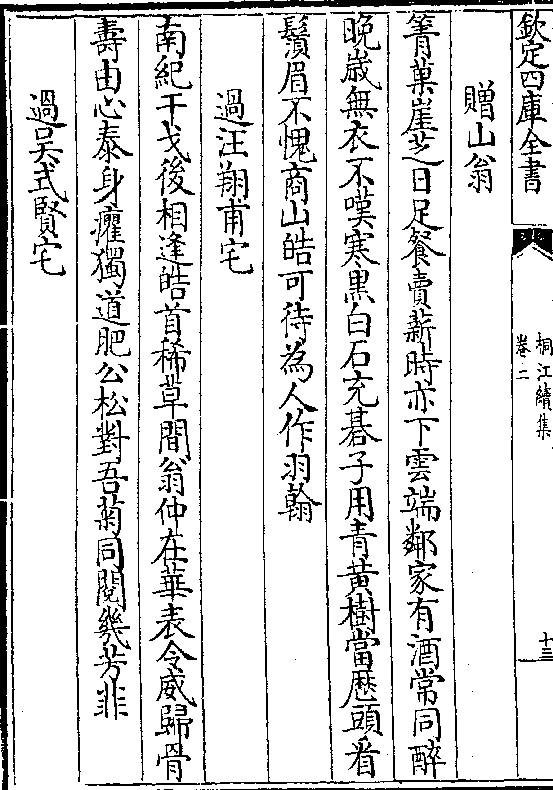 欽定四庫全書
桐江續集
卷二
十三
贈山翁
箐菓崖芝日足餐賣薪時亦下雲端鄰家有酒常同醉
晚歳無衣不嘆寒黒白石充碁子用青黃樹當歴頭看
鬚眉不愧商山皓可待為人作羽翰
過汪翔甫宅
南紀干戈後相逢皓首稀草間翁仲在華表令威歸骨
壽由心泰身癯獨道肥公松對吾菊同閱幾芳菲
過吴式賢宅